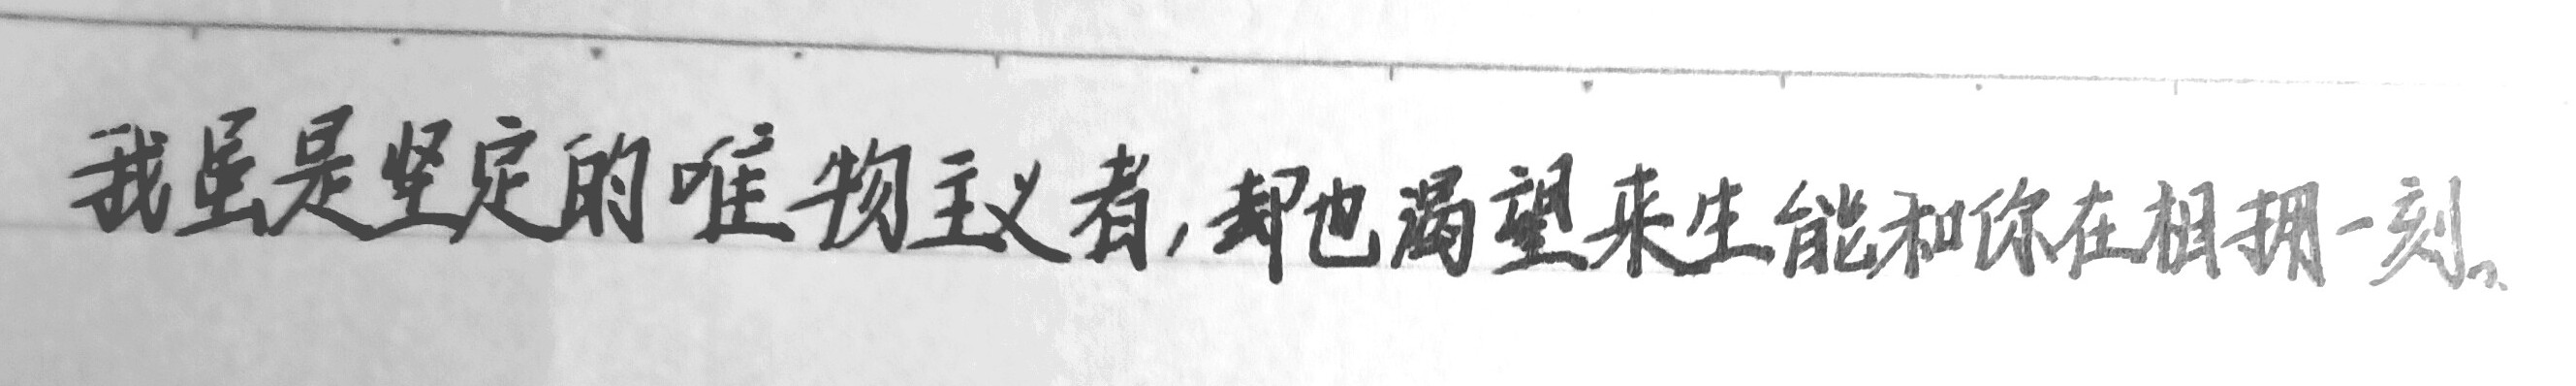 我虽是坚定的唯物主义者,却也渴望来生能和你在相拥一刻。